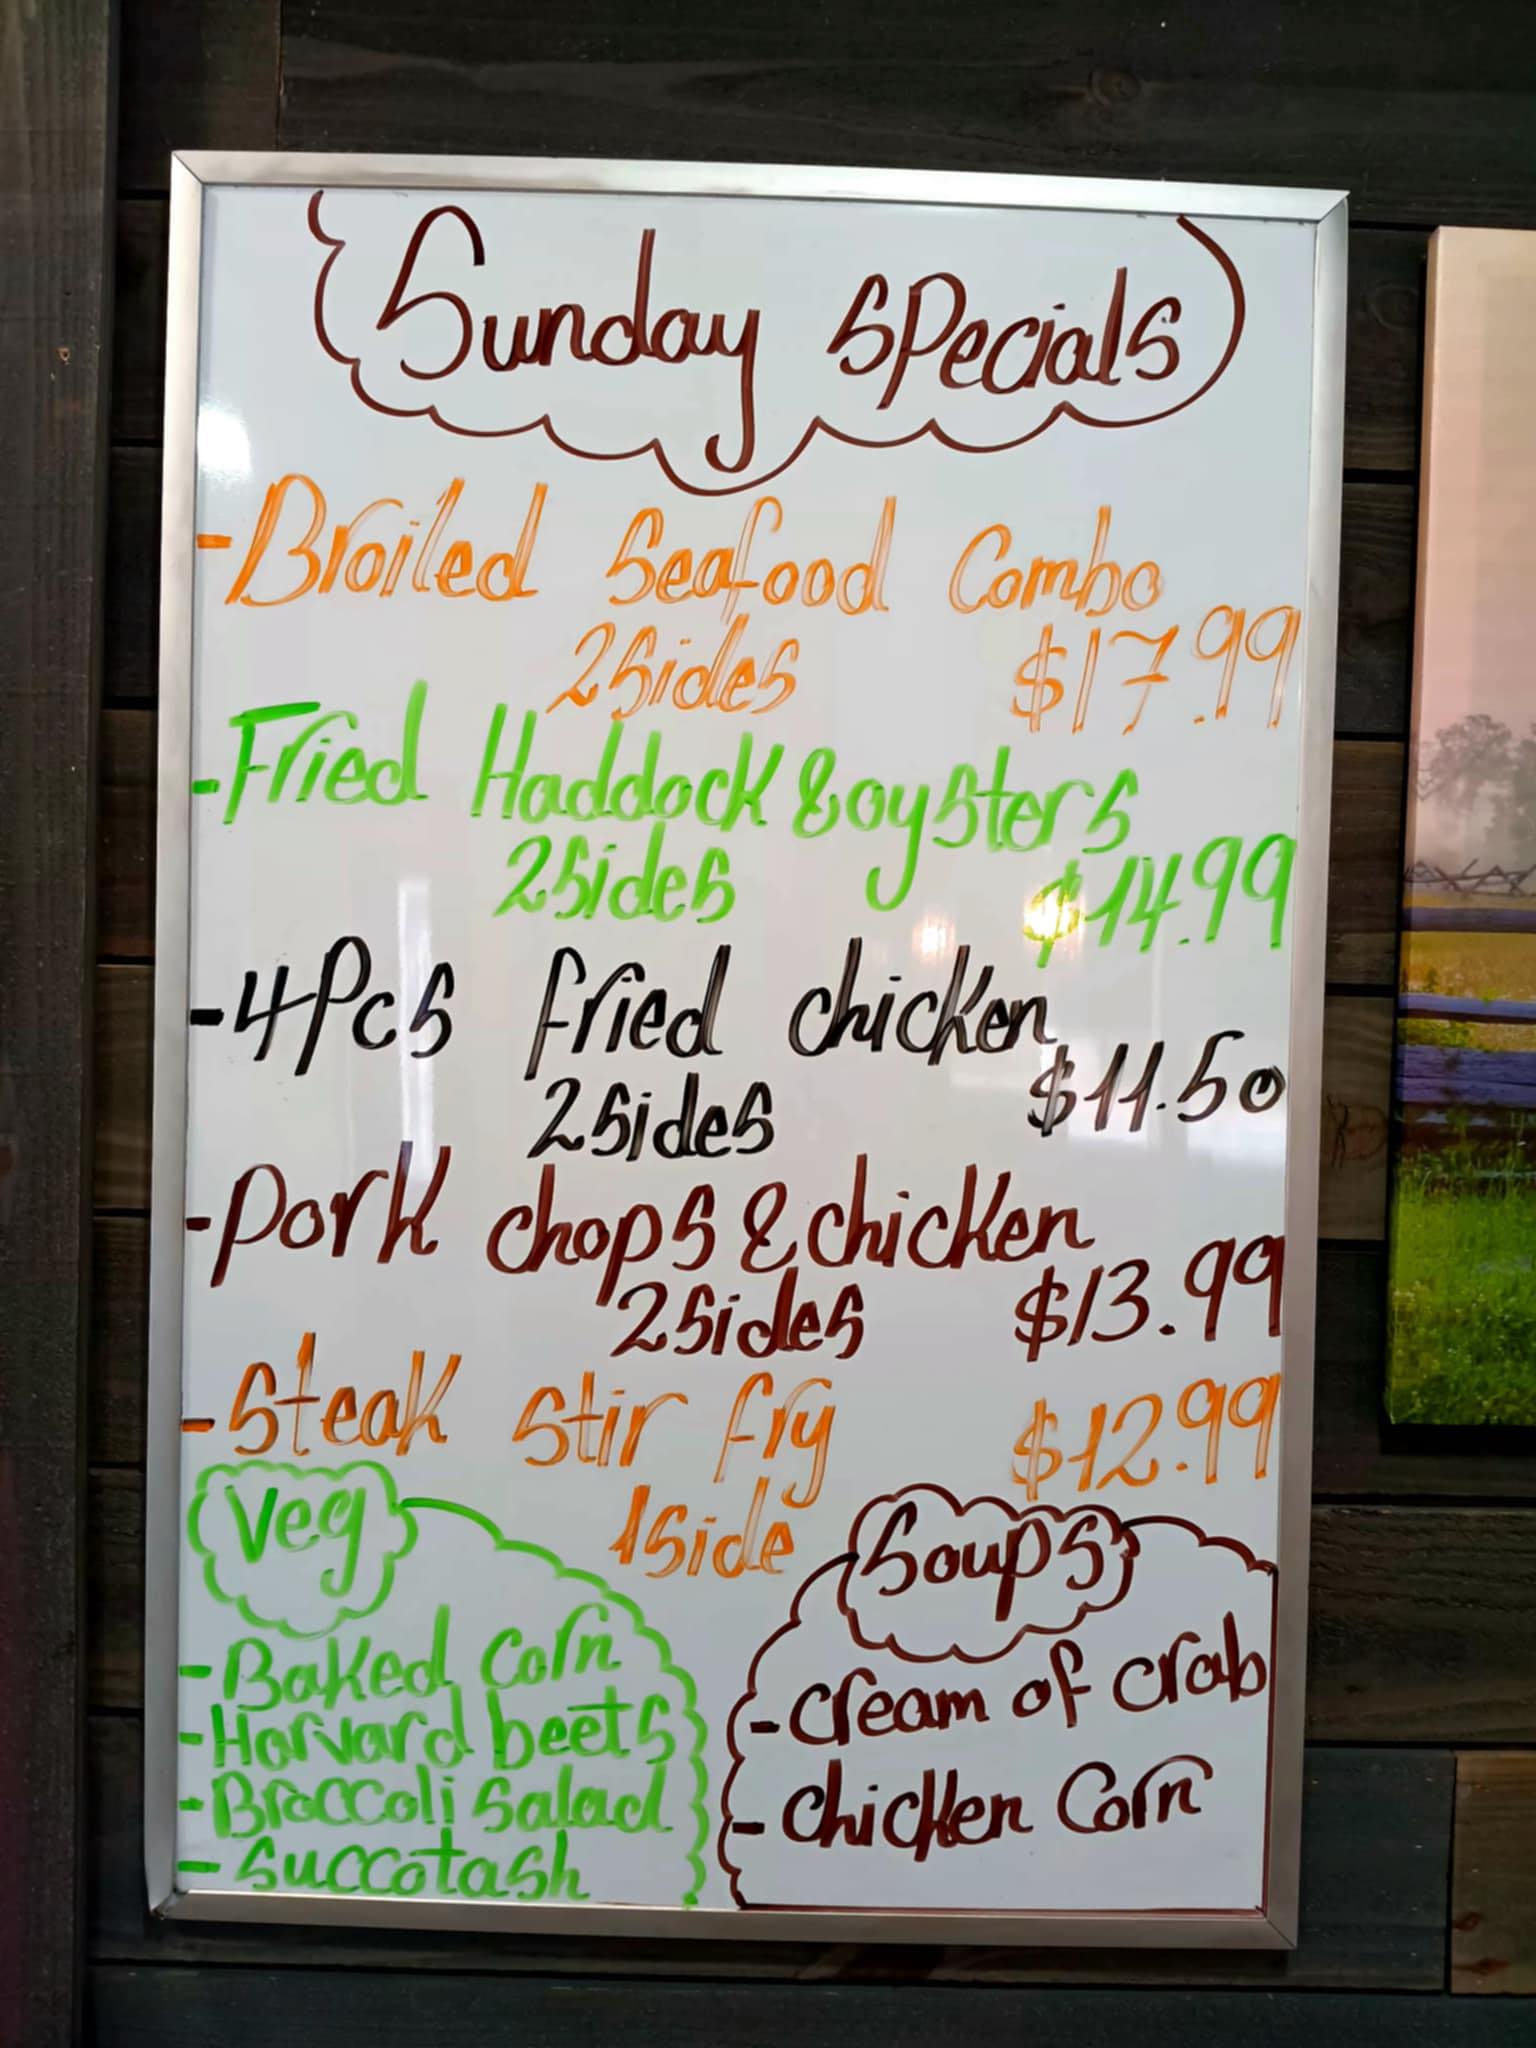 Sunday Specials
- Broiled Seafood Combo
2 Sides $17.99
- Fried Haddock & oysters
2 Sides $14.99
- 4Pcs fried chicken
2 Sides $11.50
- pork chops & chicken
2 Sides $13.99
- Steak stir fry $12.99
1 Side
Veg
- Baked Corn
- Harvard beets
- Broccoli Salad
- Succotash
Soups
- cream of crab
- chicken Corn